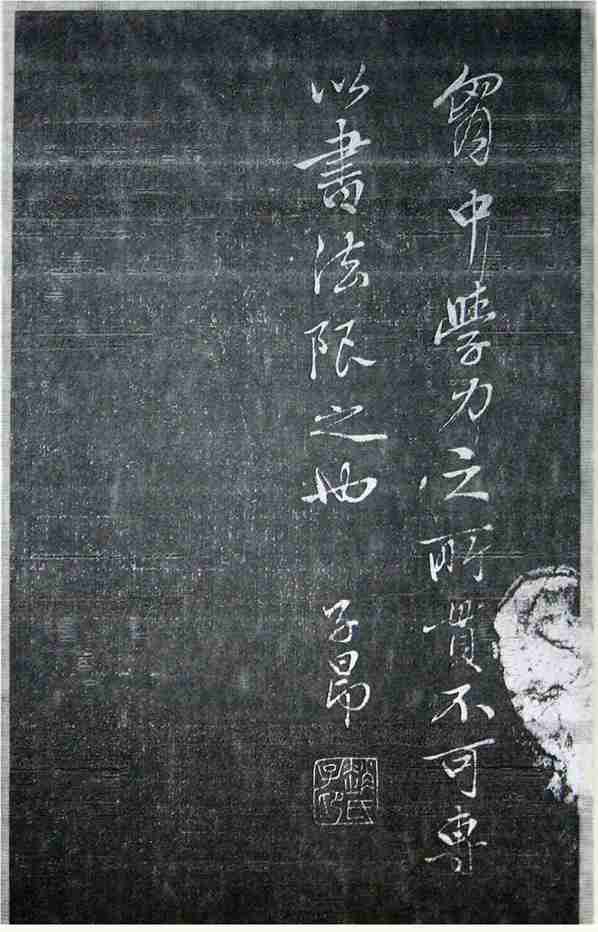 胷中學力之所貫不可專
以書法限之也 子昂
趙氏子昂